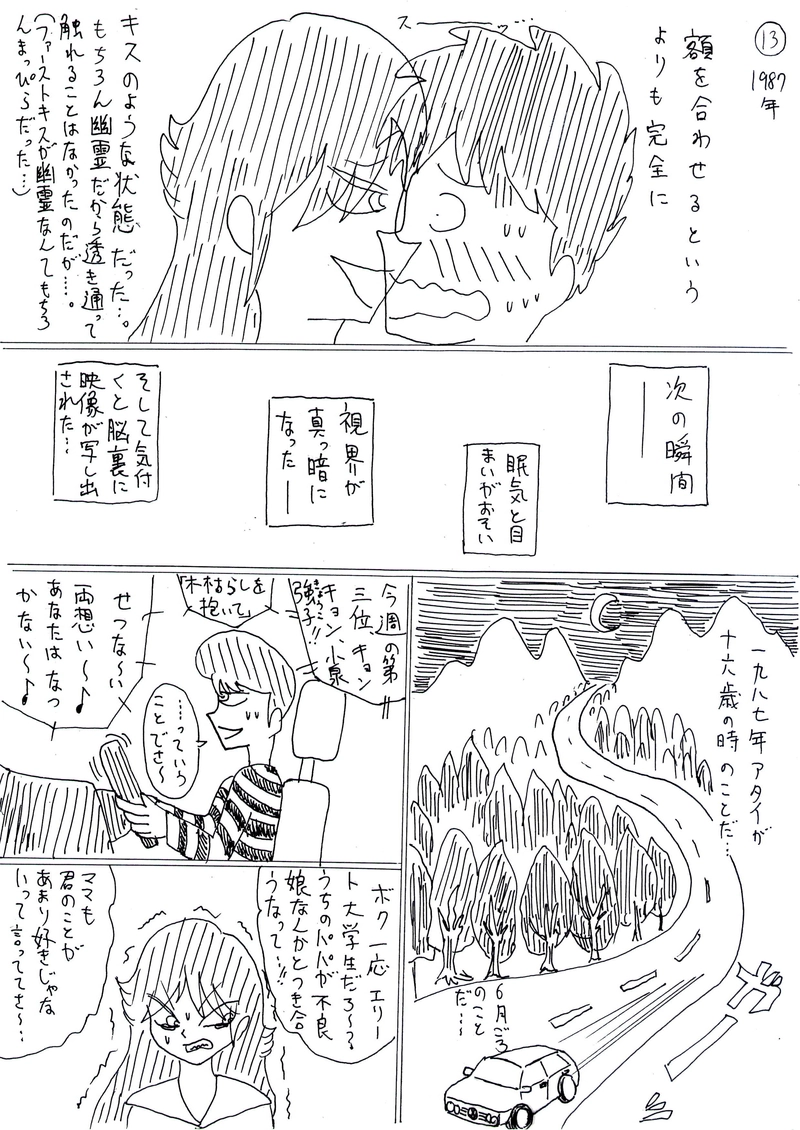 ⑬
1987年
額を合わせるという
よりも完全に
スーーーッ…
キスのような状態だった…。
もちろん幽霊だから透き通って
触れることはなかったのだが…。
(ファーストキスが幽霊なんてもちろ
んまっぴらだった…)
次の瞬間
──
眠気と目
まいがおそい
視界が
真っ暗に
なった──
そして気付
くと脳裏に
映像が写し出
された…
一九八七年アタイが
十六歳の時のことだ…
6月ごろ
のこと
だ…
今週の第
三位、キョン
キョン、小泉
強子!!
「木枯らしを
抱いて」
せつな〜い
両想い〜♪
あなたはなっ
かない〜♪
…っていう
ことでさ〜
ボク一応エリー
ト大学生だろ〜?
うちのパパが不良
娘なんかとつき合
うなって…!!
ママも
君のことが
あまり好きじゃな
いって言っててさ〜…